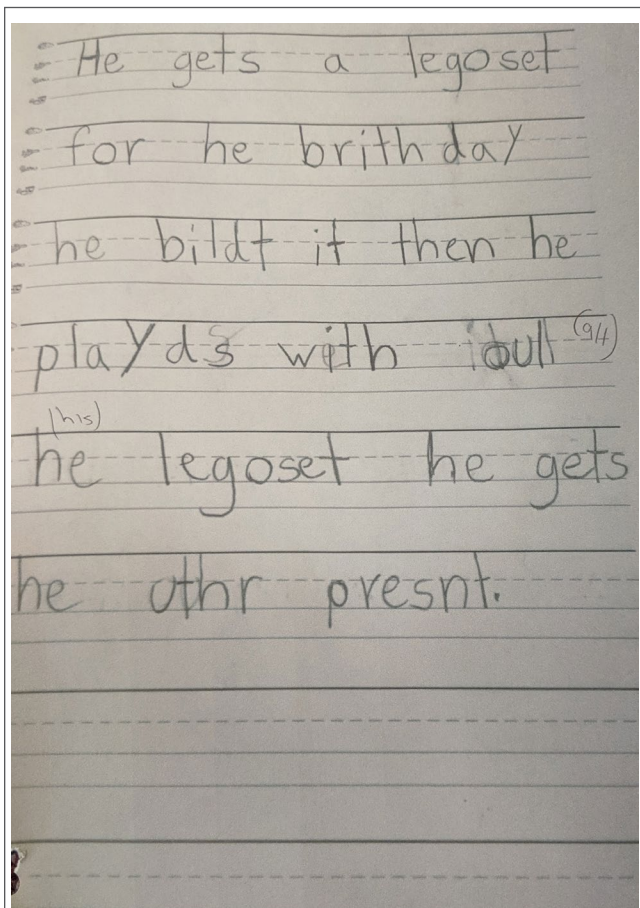 He gets a legoset
for he brithday
he bildt it then he
playds with
(his)
he legoset he gets
he othr presnt.